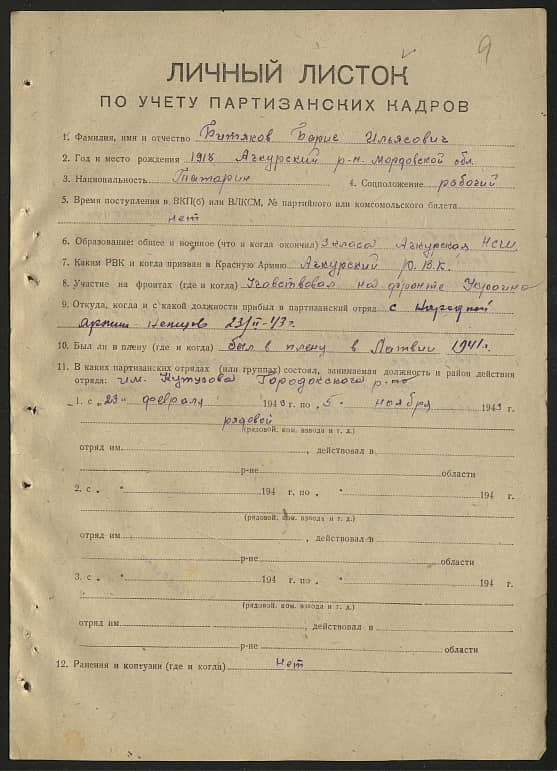 9
ЛИЧНЫЙ ЛИСТОК
ПО УЧЕТУ ПАРТИЗАНСКИХ КАДРОВ
1. Фамилия, имя и отчество Битяков Борис Ильясович
2. Год и место рождения 1918 Ачкурский р-н. Мордовской обл.
3. Национальность Татарин 4. Соцположение рабочий
5. Время поступления в ВКП(б) или ВЛКСМ, № партийного или комсомольского билета
нет
6. Образование: общее и военное (что и когда окончил) 3 класа Ачкурская НСШ
7. Каким РВК и когда призван в Красную Армию Ачкурский Р.В.К.
8. Участие на фронтах (где и когда) Учавствовал на фронте Украина
9. Откуда, когда и с какой должности прибыл в партизанский отряд с Народной
Армии Немцов 23/II-43г.
10. Был ли в плену (где и когда) был в плену в Латвии 1941г.
11. В каких партизанских отрядах (или группах) состоял, занимаемая должность и район действия
отряда: им. Кутузова Городокского р-на
1. с „23" февраля 1943 г. по „5" ноября 1943 г.
рядовой
(рядовой, ком. взвода и т. д.)
отряд им. , действовал в
р-не области
2. с „ " 194 г. по „ " 194 г.
(рядовой, ком. взвода и т. д.)
отряд им. , действовал в
р-не области
3. с „ " 194 г. по „ " 194 г.
(рядовой, ком. взвода и т. д.)
отряд им. , действовал в
р-не области
12. Ранения и контузии (где и когда) нет